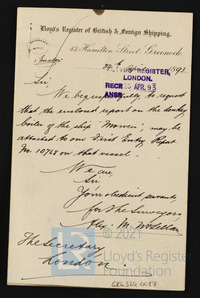 Lloyd's Register of British & Foreign Shipping.
43 Hamilton Street Greenock
24th April 1893
LLOYDS' REGISTER,
LONDON.
RECD 25 APR. 93
ANSD
Sir
We beg respectfully to request
that the enclosed report on the donkey
boiler of the ship "Morven", may be
attached to our First Entry Report
No. 10725 on that vessel.
We are
Sir
Your obedient servants
for The Surveyors
Alex. M. McLellan
The Secretary
London
© 2021
Lloyd's Register
Foundation